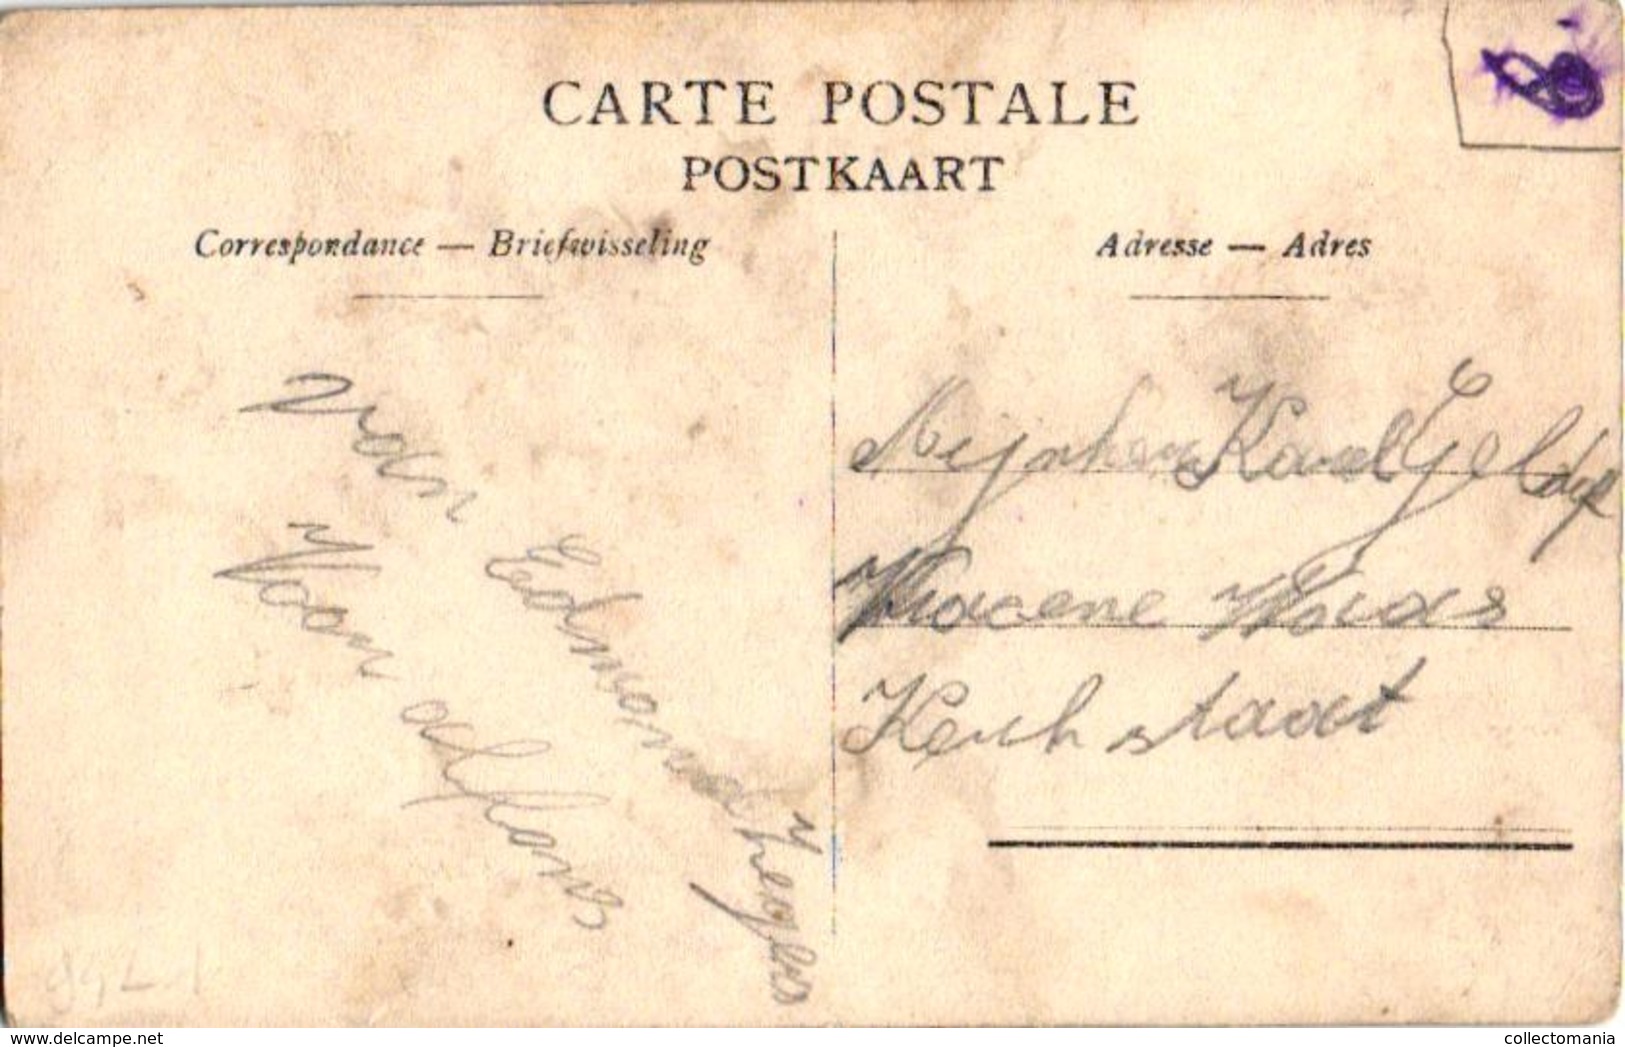 CARTE POSTALE
POSTKAART
Correspondance — Briefwisseling
Adresse — Adres
van Edmond
Voor alfons
Mijnheer Karel Geldof
Wacene Waas
Kerk staat
delcampe.net
collectomania